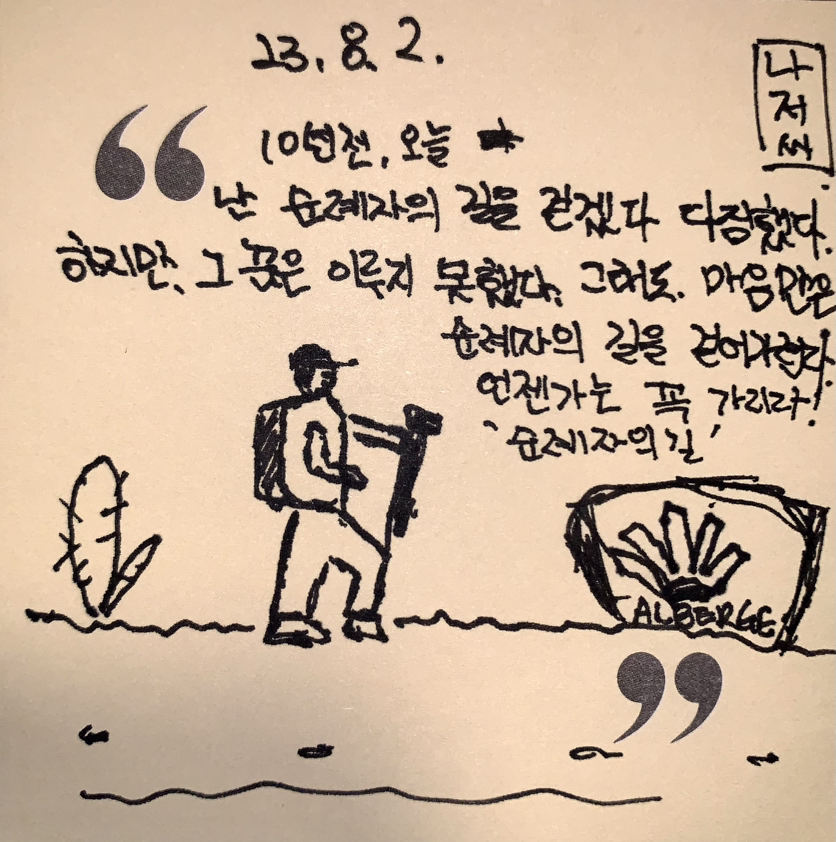 23. 8. 2.
나
저
씨
10년전, 오늘
난 순례자의 길을 걷겠다 다짐했다.
하지만, 그 꿈은 이루지 못했다. 그래도. 마음만은
순례자의 길을 걸어가련다.
언젠가는 꼭 가리라!
'순례자의 길'
ALBERGE